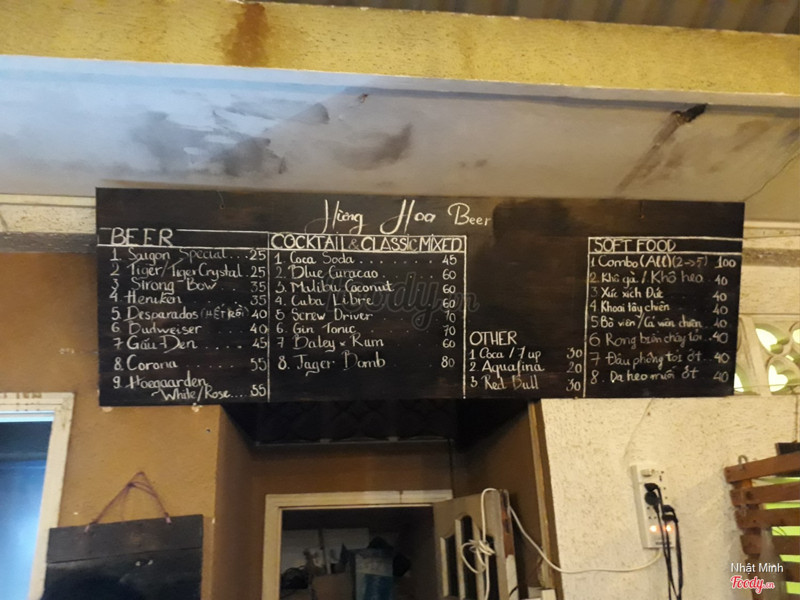 Hường Hoa Beer
BEER
1 Saigon Special....25
2 Tiger/Tiger Crystal. 25
3 Strong-Bow 35
4 Heniken 35
5 Desparados (HẾT RỒI) 40
6 Budweiser 40
7 Gấu Đen 45
8. Corona 55
9. Hoegaarden
White/Rose.... 55
COCKTAIL & CLASSIC MIXED
1. Coca Soda 45
2. Blue Curacao 60
3. Malibu Coconut 60
4. Cuba Libre 60
5 Screw Driver 70
6. Gin Tonic 70
7 Baley x Rum 60
8. Jager Bomb 80
OTHER
1 Coca / 7 up 30
2. Aquafina 20
3 Red Bull 30
SOFT FOOD
1. Combo (All) (2→5) 100
2. Khô gà / Khô heo 40
3 Xúc xích Đức 40
4 Khoai tây chiên 40
5 Bò viên / Cá viên chiên 40
6 Rong biển cháy tỏi.. 40
7 Đậu phộng tỏi ớt.. 40
8. Da heo muối ớt 40
Foody.vn
Nhật Minh
Foody.vn